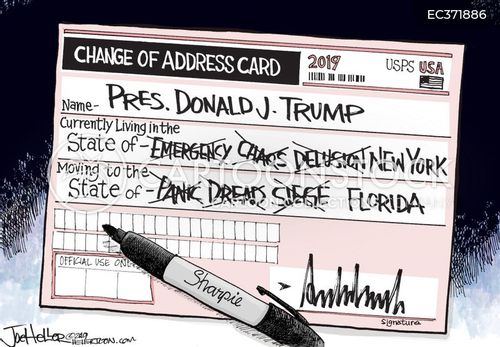 EC371886
CHANGE OF ADDRESS CARD
2019
USPS USA
Name- PRES. DONALD J. TRUMP
Currently Living in the
State of - EMERGENCY CHAOS DELUSION NEW YORK
Moving to the
State of - PANIC DREAD SIEGE FLORIDA
CARTOONSTOCK
OFFICIAL USE ONLY
Sharpie
signature
Joe Heller ©2019
HELLERTOON.com